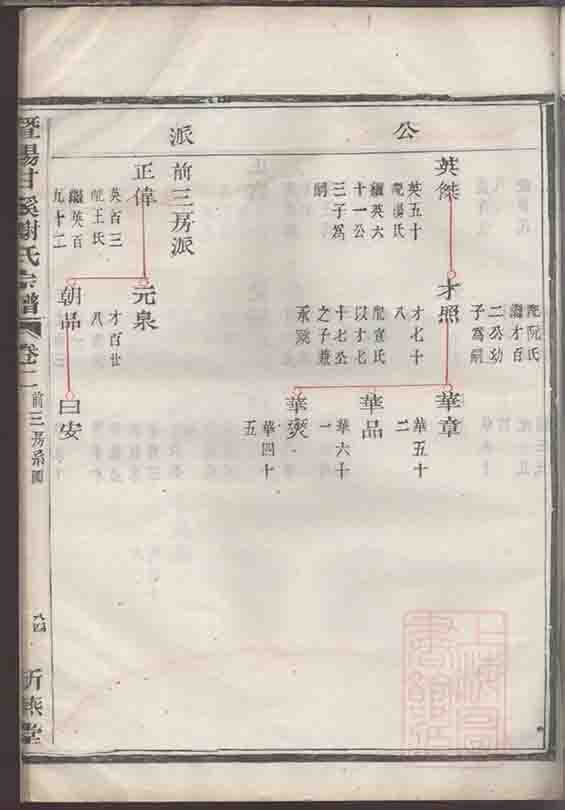 公
派
英傑
英五十
繼英六
十一公
三子為
嗣
才照
配阮氏
繼才百
二公幼
子為嗣
才七十
八
配宣氏
以才七
十七公
之子兼
承祧
華章
華五十
二
華品
華六十
一
華燮
華四十
五
前三房派
正偉
英百三
配王氏
繼英百
九十二
元泉
才百廿
八
朝品
曰安
暨陽甘溪謝氏宗譜
卷二
前三房系圖